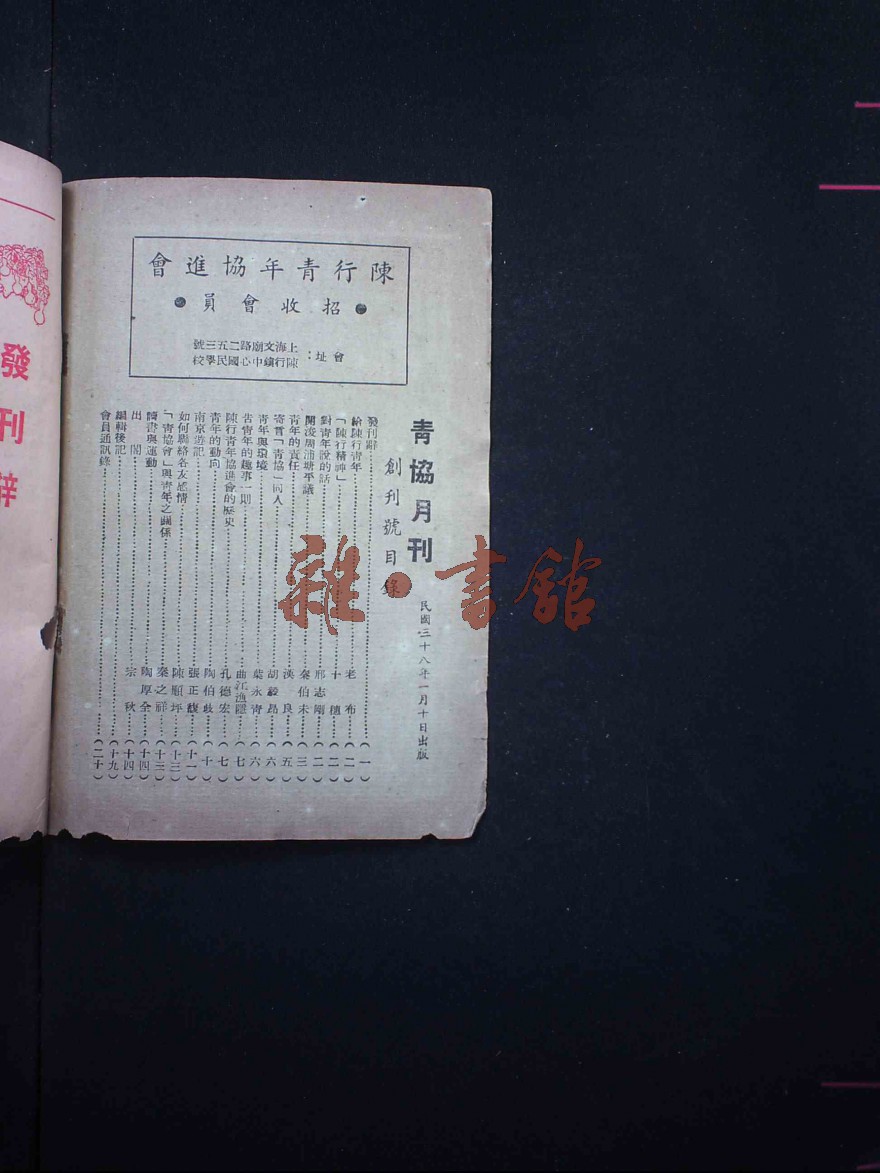 陳行青年協進會
●招收會員●
會址：
上海文廟路二五三號
陳行鎮中心國民學校
青協月刊
創刊號目錄
民國三十八年一月十日出版
發刊辭（一）
給陳行青年 老布（二）
「陳行精神」 十 （二）
對青年說的話 邢志剛（二）
開浚周浦塘平議 秦伯未（三）
青年的責任 漢良（五）
寄言「青協」同人 胡毅昂（六）
青年與環境 葉永青（六）
苦青年的趣事一則 曲江漁隱（七）
陳行青年協進會的歷史 孔德宏（七）
青年的動向 陶伯歧（十）
南京遊記 張正馥（十一）
如何聯絡各友感情 陳順坪（十三）
「青協會」與青年之關係 秦之祥（十三）
讀書與運動 陶厚全（十四）
出閣 宗秋（十四）
編輯後記（十九）
會員通訊錄（二十）
發刊辭
雜·書館